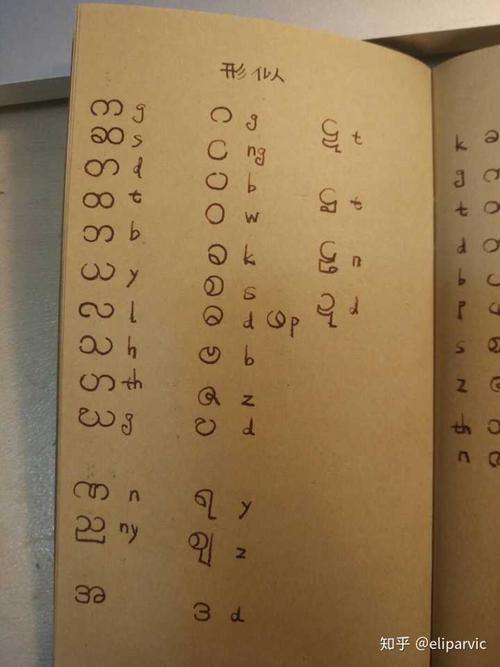 形似
က g
ဆ s
တ d
ထ t
ဘ b
ယ y
လ l
ဟ h
သ th
ဃ g
ဏ n
ည ny
အ
ဂ g
င ng
ပ b
ဝ w
ခ k
စ s
ဓ d ဖ p
ဗ b
ဇ z
ဎ d
ရ y
ဈ z
ဒ d
ဋ t
ဌ t
n
ဍ d
k
g
t
d
b
p
s
z
th
n
知乎 @eliparvic